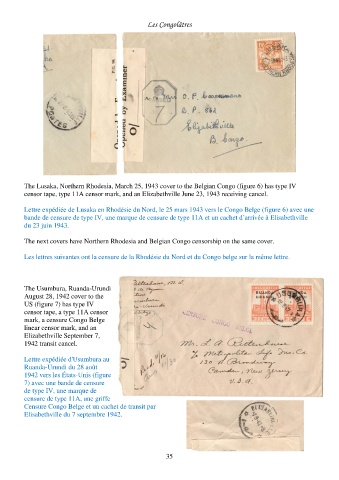 Les Congolâtres
Opened by Examiner
7
O. F.
B. P.
Elizabethville
B. Congo
The Lusaka, Northern Rhodesia, March 25, 1943 cover to the Belgian Congo (figure 6) has type IV
censor tape, type 11A censor mark, and an Elizabethville June 23, 1943 receiving cancel.
Lettre expédiée de Lusaka en Rhodésie du Nord, le 25 mars 1943 vers le Congo Belge (figure 6) avec une
bande de censure de type IV, une marque de censure de type 11A et un cachet d'arrivée à Elisabethville
du 23 juin 1943.
The next covers have Northern Rhodesia and Belgian Congo censorship on the same cover.
Les lettres suivantes ont la censure de la Rhodésie du Nord et du Congo belge sur la même lettre.
The Usumbura, Ruanda-Urundi
August 28, 1942 cover to the
US (figure 7) has type IV
censor tape, a type 11A censor
mark, a censure Congo Belge
linear censor mark, and an
Elizabethville September 7,
1942 transit cancel.
Lettre expédiée d'Usumbura au
Ruanda-Urundi du 28 août
1942 vers les États-Unis (figure
7) avec une bande de censure
de type IV, une marque de
censure de type 11A, une griffe
Censure Congo Belge et un cachet de transit par
Elisabethville du 7 septembre 1942.
USUMBURA
Mr. L A Bittenhouse
% Metropolitan Life Ins. Co.
130 N. Broadway
Camden, New Jersey
U.S.A.
35